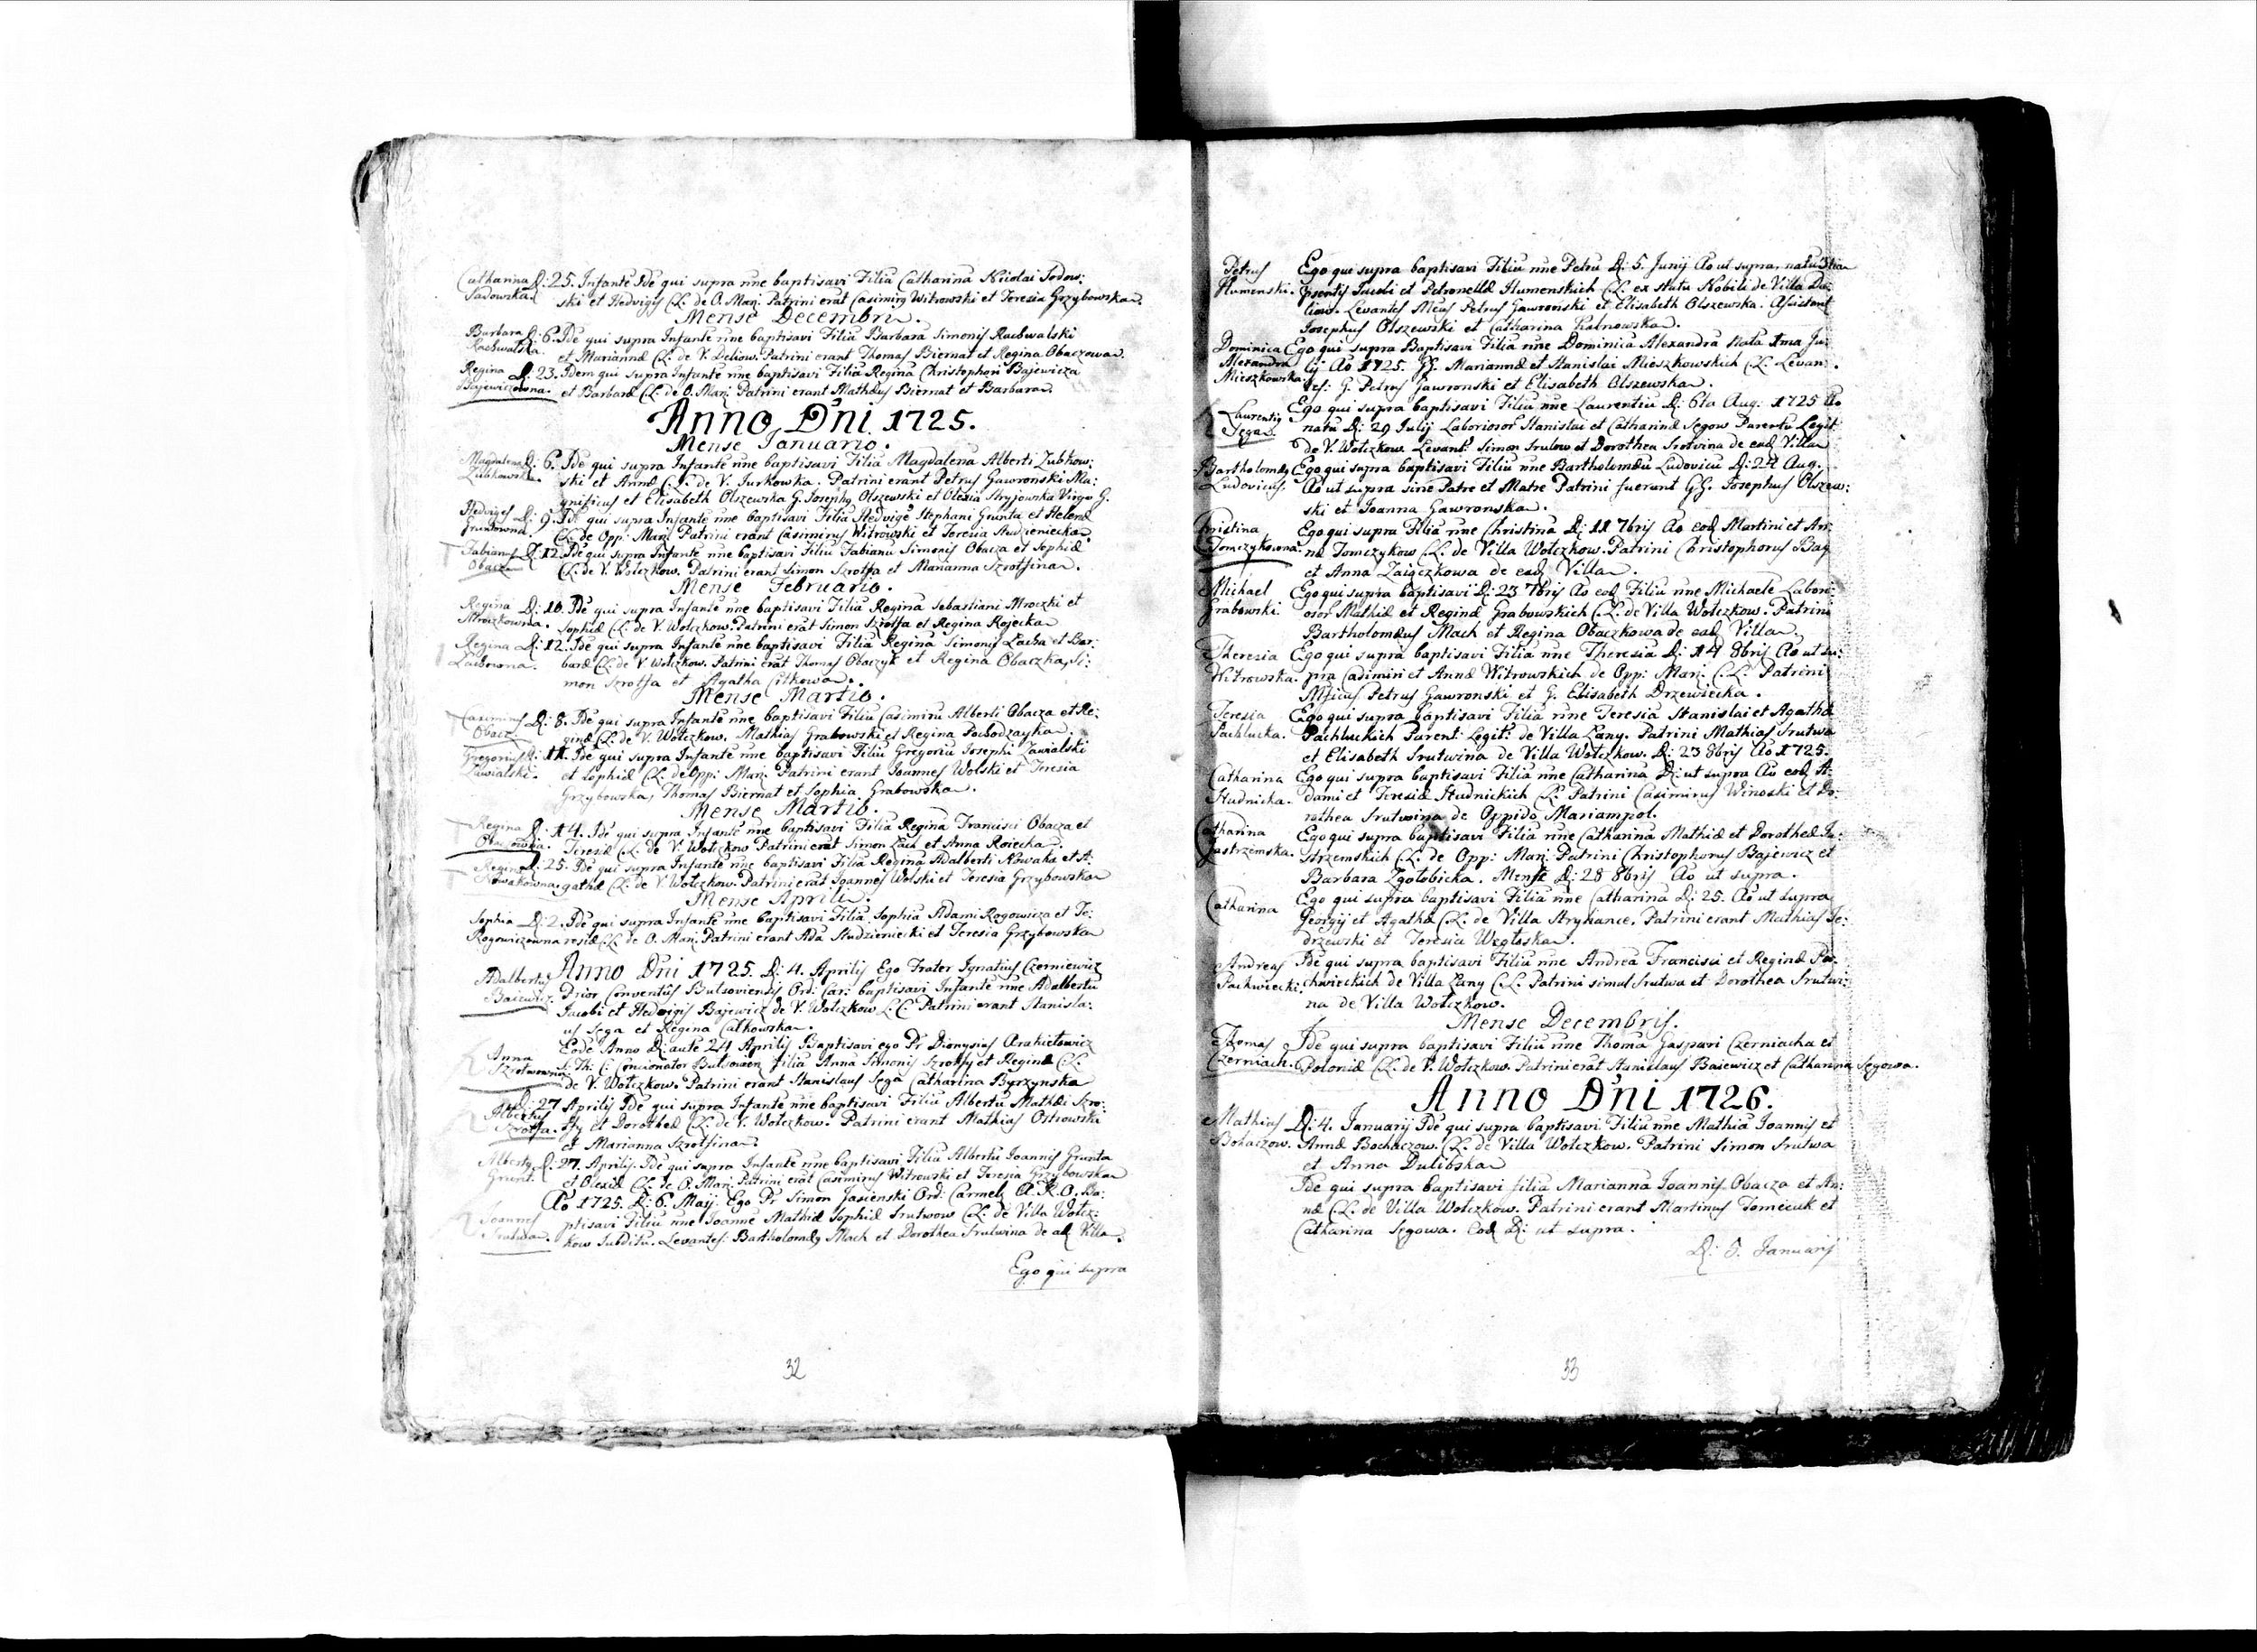 Catharina D: 25. Infantē Idē qui supra nne baptisavi Filiā Catharinā Nicolai Sadow:
Sadowska. ski et Hedvigis C.L. de O. Marj. Patrini erāt Casimirg Witrowski et Teresia Grzybowska.
Mense Decembri.
Barbara D: 6. Idē qui supra Infantē nne baptisavi Filiā Barbarā Simonis Rachwalski
Rachwalska. et Mariannæ C.L. de V. Deliow. Patrini erant Thomas Biernat et Regina Obaczowa.
Regina D: 23. Idem qui supra Infantē nne baptisavi Filiā Reginā Christophori Bajewicza
Bajewiczowna. et Barbaræ C.L. de O. Marj. Patrini erant Mathæus Biernat et Barbara.
Anno Dni 1725.
Mense Januario.
Magdalena D: 6. Idē qui supra Infantē nne baptisavi Filiā Magdalenā Alberti Zubkow:
Zubkowska. ski et Annæ C.L. de V. Jurkowka. Patrini erant Petrus Gawronski Ma:
gnificus et Elisabeth Olszewska G. Josephg Olszewski et Olexia Stryjowska Virgo G.
Hedviges D: 9. Idē qui supra Infantē nne baptisavi Filiā Hedvigē Stephani Grunta et Helenæ
Gruntowna. C.L. de Opp: Marj. Patrini erant Casimirus Witrowski et Teresia Studzieniecka.
Fabiang D: 12. Idē qui supra Infantē nne baptisavi Filiū Fabianū Simonis Obacza et Sophiæ
Obacz. C.L. de V. Wołczkow. Patrini erant Simon Szrotfa et Marianna Szrotfina.
Mense Februario.
Regina D: 10. Idē qui supra Infantē nne baptisavi Filiā Reginā Sebastiani Mroczki et
Mroczkowna. Sophiæ C.L. de V. Wołczkow. Patrini erāt Simon Szrotfa et Regina Rojecka
Regina D: 12. Idē qui supra Infantē nne baptisavi Filiā Reginā Simonis Lacha et Bar:
Lachowna. baræ C.L. de V. Wołczkow. Patrini erāt Thomas Obaczyk et Regina Obaczka, Si:
mon Szrotfa et Agatha Citkowa.
Mense Martio.
Casimirus D: 8. Idē qui supra Infantē nne baptisavi Filiū Casimirū Alberti Obacza et Re:
Obacz. ginæ C.L. de V. Wołczkow. Mathias Grabowski et Regina Pochodzayka.
Gregorius D: 11. Idē qui supra Infantē nne baptisavi Filiū Gregoriū Josephi Zawialski
Zawialski. et Sophiæ C.L. de Opp: Marj. Patrini erant Joannes Wolski et Teresia
Grzybowska, Thomas Biernat et Sophia Grabowska.
Mense Martio.
Regina D: 14. Idē qui supra Infantē nne baptisavi Filiā Reginā Francisci Obacza et
Obaczowna. Teresiæ C.L. de V. Wołczkow Patrini erāt Simon Lach et Anna Roiecka.
Regina D: 25. Idē qui supra Infantē nne baptisavi Filiā Reginā Adalberti Nowaka et A:
Nowakowna. gathæ C.L. de V Wołczkow. Patrini erāt Joannes Wolski et Teresia Grzybowska
Mense Aprili.
Sophia D: 2. Idē qui supra Infantē nne baptisavi Filiā Sophiā Adami Rogowicza et Te:
Rogowiczowna resiæ C.L. de O. Marj. Patrini erant Adā Studzieniecki et Teresia Grzybowska
Anno Dni 1725. D: 4. Aprilis Ego Frater Ignatius Czerniewicz
Adalbertus Prior Conventūs Bulsoviensis Ord: Car: baptisavi Infantē nne Adalbertū
Baiewicz. Jacobi et Hedvigis Bajewicz de V. Wołczkow L.C. Patrini erant Stanisla:
us Sega et Regina Catkowska.
Eodē Anno D: autē 24 Aprilis Baptisavi ego Pr Dionysius Arakielowicz
Anna S: Th: C: Concionator Bulsovien Filiā Annā Simonis Szrotfy et Reginæ C.L.
Szrotwowna de V. Wołczkow. Patrini erant Stanislaus Sega Catharina Byrzynska
D: 27 Aprilis Idē qui supra Infantē nne baptisavi Filiū Albertū Mathæi Szro:
Albertus Szrotfa. tfy et Dorotheæ C.L. de V. Wołczkow. Patrini erant Mathias Ostrowski
et Marianna Szrotfina.
Albertg D: 27. Aprilis. Idē qui supra Infantē nne baptisavi Filiū Albertū Joannis Grunta
Grunt. et Olexiæ C.L. de O. Marj. Patrini erāt Casimirus Witrowski et Teresia Grzybowska
Ao 1725. D: 6. Maij. Ego Pr Simon Jasienski Ord: Carmel: A.R.O. Ba:
Joannes ptisavi Filiū nne Joannē Mathiæ Sophiæ Srutwow C.L. de Villa Wołcz:
Srutwa. kow Subditū. Levantes: Bartholomæg Mach et Dorothea Srutwina de ad Villa.
Ego qui supra
32
Petrus Ego qui supra baptisavi Filiū nne Petrū D: 5. Junij Ao ut supra, natū 3tia
Humenski. psentis Jacobi et Petronellæ Humenskich C.L. ex statu Nobili de Villa De:
liow. Levantes Mcus Petrus Gawronski et Elisabeth Olszewska. Assistant
Josephus Olszewski et Catharina Kalnowska.
Dominica Ego qui supra Baptisavi Filiā nne Dominicā Alexandrā Natā 1ma Ju:
Alexandra lij Ao 1725. GG. Mariannæ et Stanislai Mieszkowskich C.L. Levan:
Mieszkowska. tes: G. Petrus Gawronski et Elisabeth Olszewska.
Laurentig Ego qui supra baptisavi Filiū nne Laurentiū D: 6ta Aug: 1725 Ao
Sega. natū D: 29 Julij Laboriosor Stanislai et Catharinæ Segow Parentū Legit:
de V. Wołczkow. Levant: Simon Srutow et Dorothea Srotvina de ead Villa
Bartholomæg Ego qui supra baptisavi Filiū nne Bartholomæū Ludovicū D: 24 Aug.
Ludovicus. Ao ut supra sine Patre et Matre Patrini fuerunt GG. Josephus Olszew:
ski et Joanna Gawronska.
Christina Ego qui supra Filiā nne Christinā D: 11 7bris Ao eod Martini et An:
Tomczykowna. næ Tomczykow C.L. de Villa Wołczkow. Patrini Christophorus Bag
et Anna Zaigczkowa de ead Villa.
Michael Ego qui supra baptisavi D: 23 7bris Ao eod Filiū nne Michaelē Labori:
Grabowski osor Mathiæ et Reginæ Grabowskich C.L. de Villa Wołczkow. Patrini
Bartholomæus Mach et Regina Obaczkowa de ead Villa.
Theresia Ego qui supra baptisavi Filiā nne Theresiā D: 14 8bris Ao ut su:
Witrowska. pra Casimiri et Annæ Witrowskich de Opp: Marj. C.L. Patrini
Mficus Petrus Gawronski et G. Elisabeth Drzewiecka.
Teresia Ego qui supra baptisavi Filiā nne Teresiā Stanislai et Agathæ
Pachlucka. Pachluckich Parent: Legit: de Villa Łany. Patrini Mathias Srutwa
et Elisabeth Srutwina de Villa Wołczkow. D: 23 8bris Ao 1725.
Catharina Ego qui supra baptisavi Filiā nne Catharinā D: ut supra Ao eod A:
Studnicka. dami et Teresiæ Studnickich C.L. Patrini Casimirus Winoski et Do:
rothea Srutwina de Oppido Mariampol.
Catharina Ego qui supra baptisavi Filiā nne Catharinā Mathiæ et Dorotheæ Ja:
Jastrzemska. strzemskich C.L. de Opp: Marj. Patrini Christophorus Bajewicz et
Barbara Zgołobicka. Mense D: 28 8bris Ao ut supra.
Catharina Ego qui supra baptisavi Filiā nne Catharinā D: 25. Ao ut supra
Georgij et Agathæ C.L. de Villa Stryhance. Patrini erant Mathias Je:
drzewski et Teresia Węgłoska.
Andreas Idē qui supra baptisavi Filiū nne Andreā Francisci et Reginæ Pa:
Pachwiecki. chwieckich de Villa Łany C.L. Patrini simul Srutwa et Dorothea Srutwi:
na de Villa Wołczkow.
Mense Decembris.
Thomas Idē qui supra baptisavi Filiū nne Thomā Gaspari Czerniacha et
Czerniach. Poloniæ C.L. de V. Wołczkow. Patrini erāt Stanislaus Baiewicz et Catharina Segowa.
Anno Dni 1726.
Mathias D: 4. Januarij Idē qui supra baptisavi Filiū nne Mathiā Joannis et
Bohaczow. Annæ Bochaczow. C.L. de Villa Wołczkow. Patrini Simon Srutwa
et Anna Dulibska
Idē qui supra baptisavi filiā Mariannā Joannis Obacza et An:
næ C.L. de Villa Wołczkow. Patrini erant Martinus Tomeczuk et
Catharina Segowa. Eod D: ut supra.
D: 5. Januarij
33